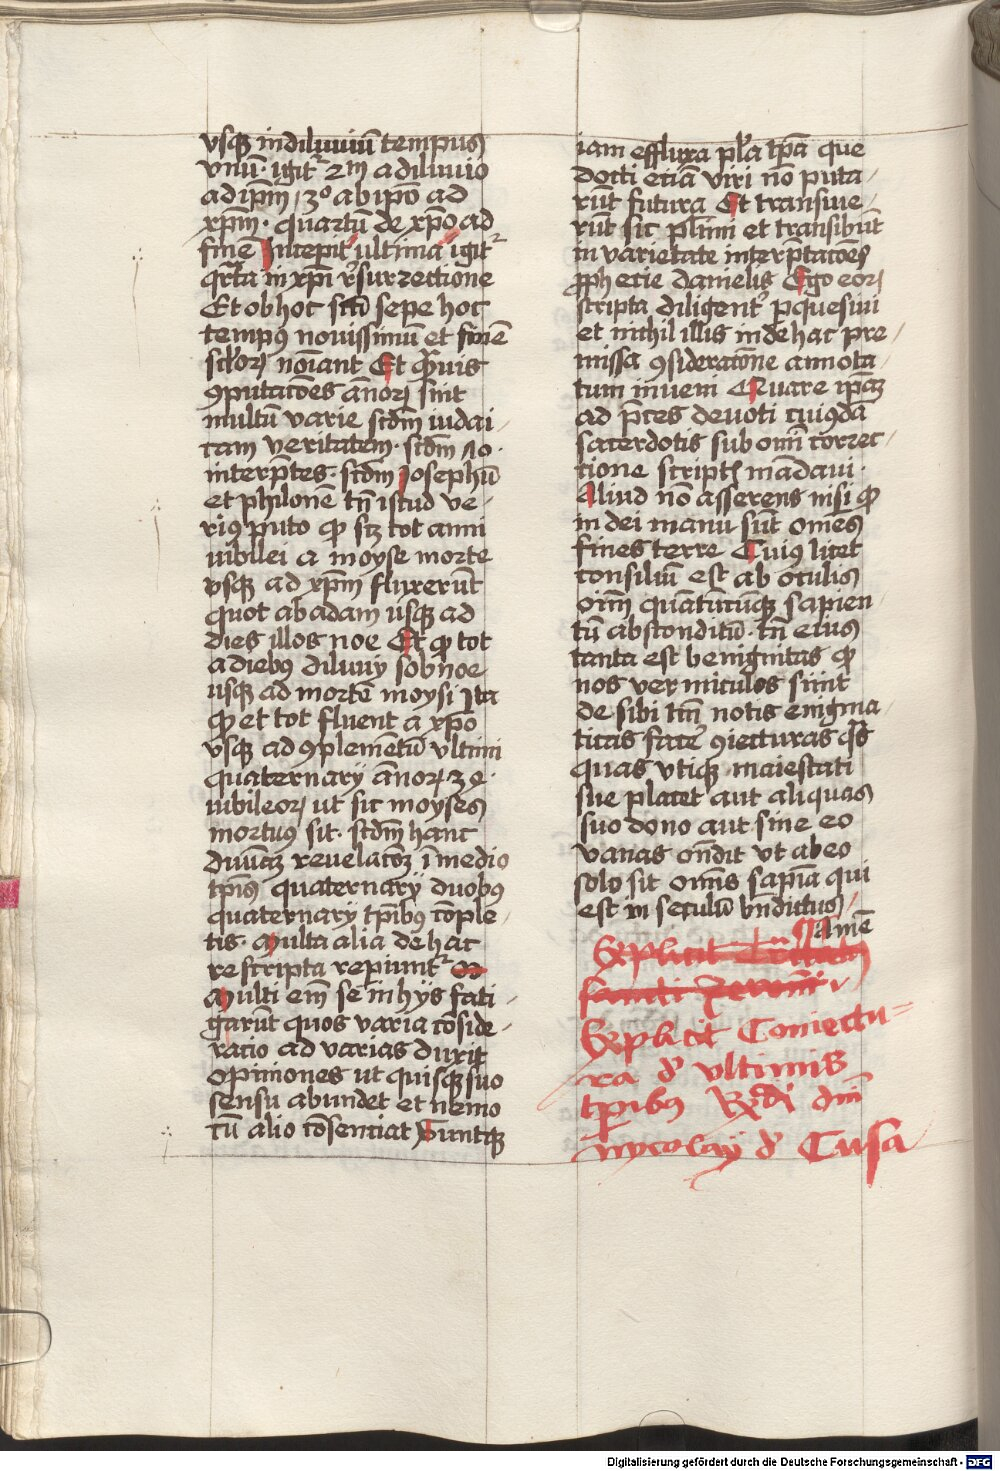 vsqꝫ in diluuiū tempus
vnū · igit᷑ 2m a diluuio
ad ip̄m / 3o ab ip̄o ad
xp̄m · quartū de xp̄o ad
finē Incepit ultima igit᷑
q̄rta in xp̄i r̄surrectione
Et ob hoc sc̄i sepe hoc
tempꝰ nouissimū et finē
sc̄loꝝ noīant Et q̄muis
ꝯputac̄oēs annoꝝ sint
multū varie scd̄m iudai
cam veritatem · scd̄m 70 ·
interp̄tes · scd̄m Josephū
et philonē tn̄ istud ve /
riꝰ puto ꝙ sꝫ tot anni
iubilei a moyse morte
vsqꝫ ad xp̄m fluxerūt
quot ab adam usqꝫ ad
dies illos noe Et ꝙ tot
a diebꝰ diluuij sub noe
usqꝫ ad mortē moysi Ita
ꝙ et tot fluent a xp̄o
vsqꝫ ad ꝯplemētū vltimi
quaternarij annoꝝ 34 ·
iubileoꝝ ut sic moyses
mortuꝰ sit · scd̄m hanc
diuināꝫ reuelac̄oēꝫ ī medio
tp̄is quaternarij duobꝰ
quaternarij tp̄ibꝰ cōple /
tis · Multa alia de hac
re scripta repiunt᷑
Multi em̄ se in hijs fati /
garūt quos varia cōside /
racio ad varias duxit
opiniones ut quisqꝫ suo
sensu abundet et nemo
cū alio cōsenciat Suntqꝫ
iam effluxa pl̄a tp̄a que
docti eciā viri nō puta /
rūt futura Et transiue /
rūt sic plīmi et transibūt
in varietate interp̄tac̄oēs
ꝓphecie danielis Ego eoꝝ
scripta diligent᷑ ꝑquesiui
et nichil illis in de hac pre /
missa ꝯsiderac̄one annota /
tum inueni Quare ip̄aꝫ
ad p̄ces deuoti cuiꝰdā
sacerdotis sub om̄i correc /
tione script mādaui ·
Aliud nō asserens nisi ꝙ
in dei manu sūt omēs
fines terre Cuiꝰ licet
consiliū est ab oculis
oīm quātūcūqꝫ sapien /
tū absconditū · tn̄ eius
tanta est benignitas ꝙ
nos vermiculos sinit
de sibi tm̄ notis enigma /
ticas facē ꝯiecturas
quas vtiqꝫ maiestati
sue placet aut aliquas
suo dono aut sine eo
vanas on̄dit vt ab eo
solo sit om̄is sapīa qui
est in seculū bn̄dictus /
Amē
Explicit
sancti
Explicit Coniectu =
ra d̓ vltimis
tp̄ibus Rx̄di dn̄i
nycolaij d̓ Cusa
Digitalisierung gefördert durch die Deutsche Forschungsgemeinschaft - DFG